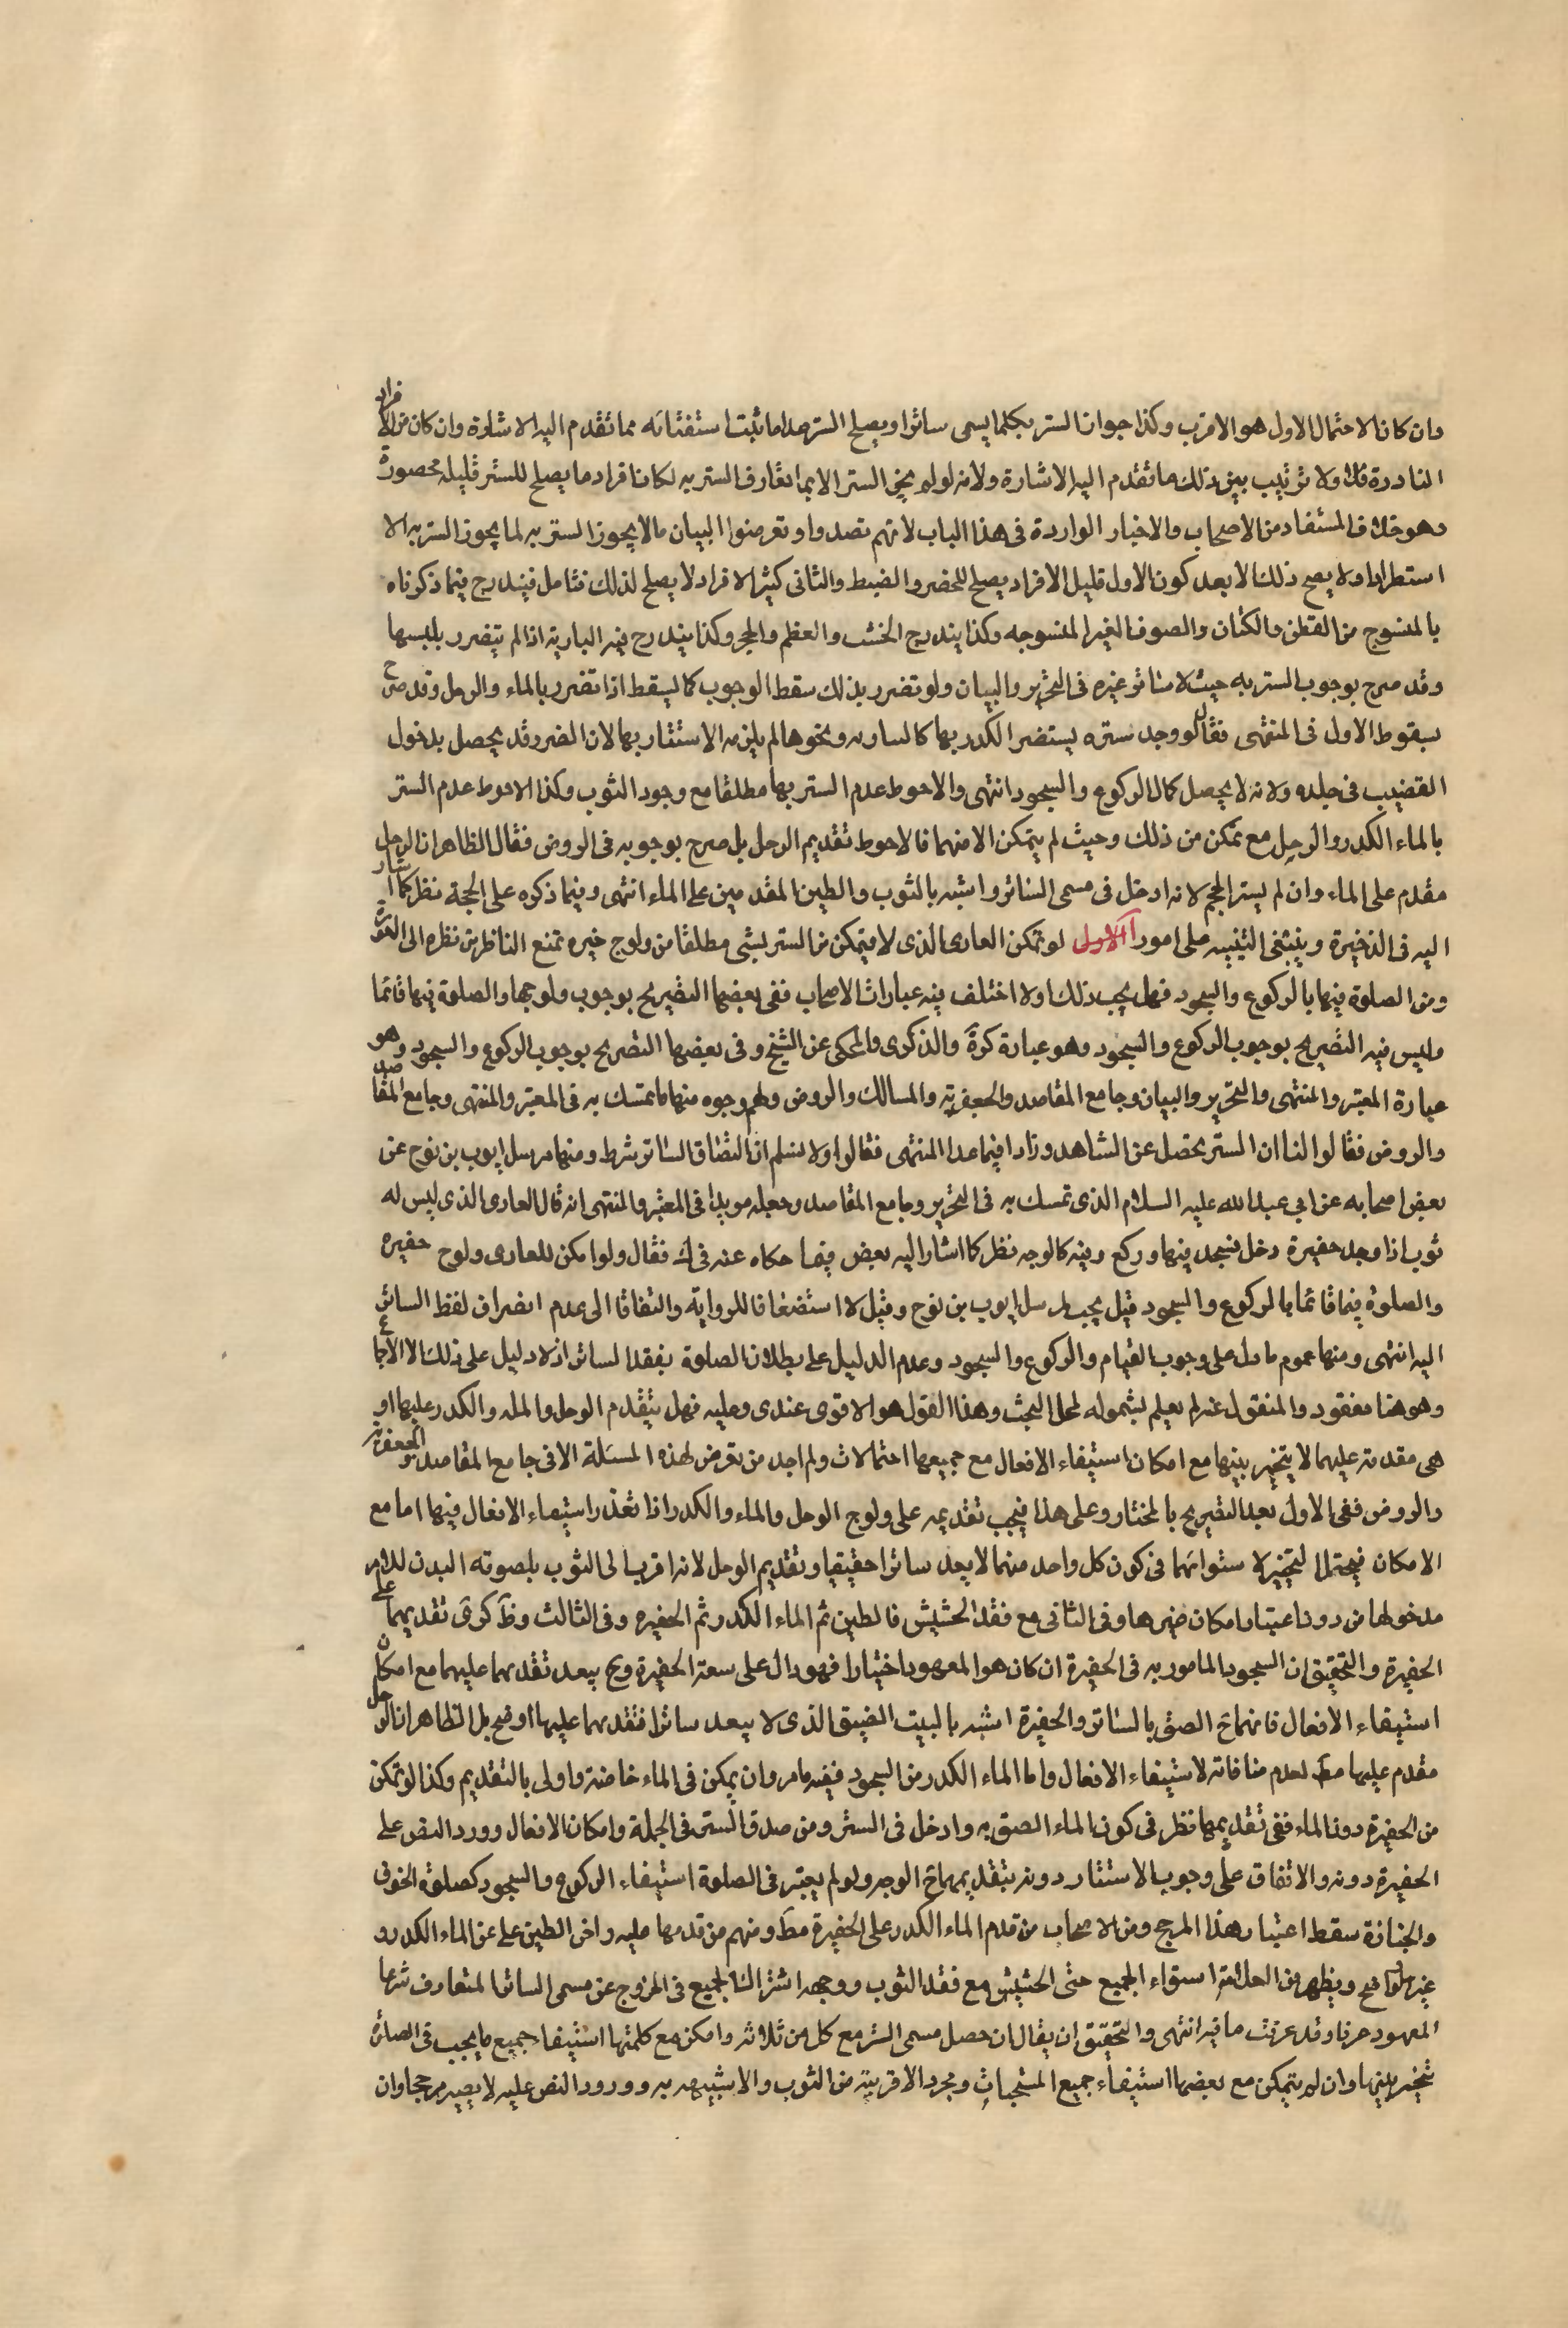 وان كان الاحتمال الاول هو الاقرب وكذا جواز الستر بكلما يسمى ساترا ويصلح الستر عدا ما ثبت استثنائه مما تقدم اليه الاشارة وان كان من الافراد
النادرة قلت ولا ترتيب بين ذلك ما تقدم اليه الاشارة ولانه لو لم يجز الستر الا بما تعارف الستر به لكان افراد ما يصلح للستر قليله محصورة
وهو خلاف المستفاد من الاصحاب والاخبار الواردة فى هذا الباب لانهم تصدوا وتعرضوا البيان ما لا يجوز الستر به لما يجوز الستر به الا
استطرادا ولا يصح ذلك الا بعد كون الاول قليل الافراد يصلح للحصر والضبط والثانى كثير الافراد لا يصلح لذلك فتامل فيندرج فيما ذكرناه
بالمنسوج من القطن والكتان والصوف الغير المنسوجه وكذا يندرج الخشب والعظم والحجر وكذا يندرج فيه البارية اذا لم يتضرر بلبسها
وقد صرح بوجوب الستر به حيث لا ساتر غيره فى التحرير والبيان ولو تضرر بذلك سقط الوجوب كما يسقط اذا تضرر بالماء والوحل وقد صرح
بسقوط الاول فى المنتهى فقال لو وجد ستره يستضر الكدر بها كالباريه ونحوها لم يلزمه الاستتار بها لان الضرر قد يحصل بدخول
القضيب فى جلده ولانه لا يحصل كمال الركوع والسجود انتهى والاحوط عدم الستر بها مطلقا مع وجود الثوب وكذا الاحوط عدم الستر
بالماء الكدر والوحل مع تمكن من ذلك وحيث لم يتمكن الا منهما فالاحوط تقديم الوحل بل صرح بوجوبه فى الروض فقال الظاهر ان الوحل
مقدم على الماء وان لم يستر الحجم لانه ادخل فى مسمى الساتر واشبه بالثوب والطين المقدمين على الماء انتهى وفيما ذكره على الحجة نظر كما اشار
اليه فى الذخيرة وينبغى التنبيه على امور الاول لو تمكن العارى الذى لا يتمكن من الستر بشى مطلقا من ولوج حفيره تمنع الناظر من نظره الى العورة
ومن الصلوة فيها بالركوع والسجود فهل يجب ذلك اولا اختلف فيه عبارات الاصحاب ففى بعضها التصريح بوجوب ولوجها والصلوة فيها قائما
وليس فيه التصريح بوجوب الركوع والسجود وهو عبارة كرة والذكرى والمحكى عن الشيخ وفى بعضها التصريح بوجوب الركوع والسجود وهو
عبارة المعتبر والمنتهى والتحرير والبيان وجامع المقاصد والجعفرية والمسالك والروض ولهم وجوه منها ما تمسك به فى المعتبر والمنتهى وجامع المقاصد
والروض فقالوا لنا ان الستر يحصل عن الشاهد وزادا فيما عدا المنتهى فقالوا ولا نسلم ان التصاق الساتر شرط ومنها مرسل ايوب بن نوح عن
بعض اصحابه عن ابي عبد الله عليه السلام الذى تمسك به فى التحرير وجامع المقاصد وجعله مويدا فى المعتبر والمنتهى انه قال العارى الذى ليس له
ثوب اذا وجد حفيرة دخل فيسجد فيها وركع وفيه كالوجه نظر كما اشار اليه بعض فيما حكاه عنه فى ك فقال ولو امكن للعارى ولوج حفيره
والصلوة فيها قائما بالركوع والسجود قيل يجب لمرسل ايوب بن نوح وقيل لا استضعافا للرواية والتفاتا الى عدم انصراف لفظ الساتر
اليه انتهى ومنها عموم ما دل على وجوب القيام والركوع والسجود وعدم الدليل على بطلان الصلوة بفقد الساتر اذ لا دليل على ذلك الا الاجماع
وهو هنا مفقود والمنقول غنه لم يعلم لشموله لمحل البحث وهذا القول هو الاقوى عندى وعليه فهل يتقدم الوحل والماء والكدر عليها او
هى مقدمة عليهما لا يتخير بينها مع امكان استيفاء الافعال مع جميعها احتمالات ولم اجد من تعرض لهذه المسئلة الا فى جامع المقاصد والجعفرية
والروض ففى الاول بعد التصريح بالمختار وعلى هذا فيجب تقديمه على ولوج الوحل والماء والكدر اذا تعذر استيفاء الافعال فيها اما مع
الامكان فيحتمل التخير لاستوائهما فى كون كل واحد منهما لا يعد ساترا حقيقيا وتقديم الوحل لانه اقرب الى الثوب بلصوته البدن للامر
مدخولها من دون اعتبار امكان ضيرها وفى الثانى مع فقد الحشيش فالطين ثم الماء الكدر ثم الحفيره وفى الثالث وظ كرى تقديمهما على
الحفيرة والتحقيق ان السجود المامور به فى الحفيرة ان كان هو المعهود اختيارا فهو دال على سعة الحفيرة وح يبعد تقدمهما عليهما مع امكان
استيفاء الافعال فانهما ح الصق بالساتر والحفيرة اشبه بالبيت الضيق الذى لا يبعد ساترا فتقدمهما عليها اوضح بل الظاهر ان الوحل
مقدم عليها مط لعدم منافاته لاستيفاء الافعال واما الماء الكدر من السجود ففيه ما مر وان يمكن فى الماء خاصة واولى بالتقديم وكذا لو تمكن
من الحفيرة دون الماء ففى تقديمها نظر فى كون الماء الصق به وادخل فى الستر ومن صدق الستر فى الجملة وامكان الافعال وورد النص على
الحفيرة دونه والاتفاق على وجوب الاستتار دونه بتقديمها ح الوجه ولو لم يعتبر فى الصلوة استيفاء الركوع والسجود كصلوة الخوف
والجنازة سقط اعتبار هذا المرجح ومن الاصحاب من قدم الماء الكدر على الحفيرة مط ومنهم من قدمها عليه واخر الطين على عن الماء الكدر و
غيرها اوضح ويظهر من العلامة استواء الجميع حتى الحشيش مع فقد الثوب ووجهه اشتراك الجميع فى الخروج عن مسمى الساتر المتعارف شرعا
المعهود عرفا وقد عرفت ما فيه انتهى والتحقيق ان يقال ان حصل مسمى الستر مع كل من ثلاثه وامكن مع كلمتها استيفاء جميع ما يجب فى الصلوة
تخير بينها وان لم يتمكن مع بعضها استيفاء جميع المستحبات ومجرد الاقربية من الثوب والاشبيهه به وورود النص عليه لا يصير مرجحا وان